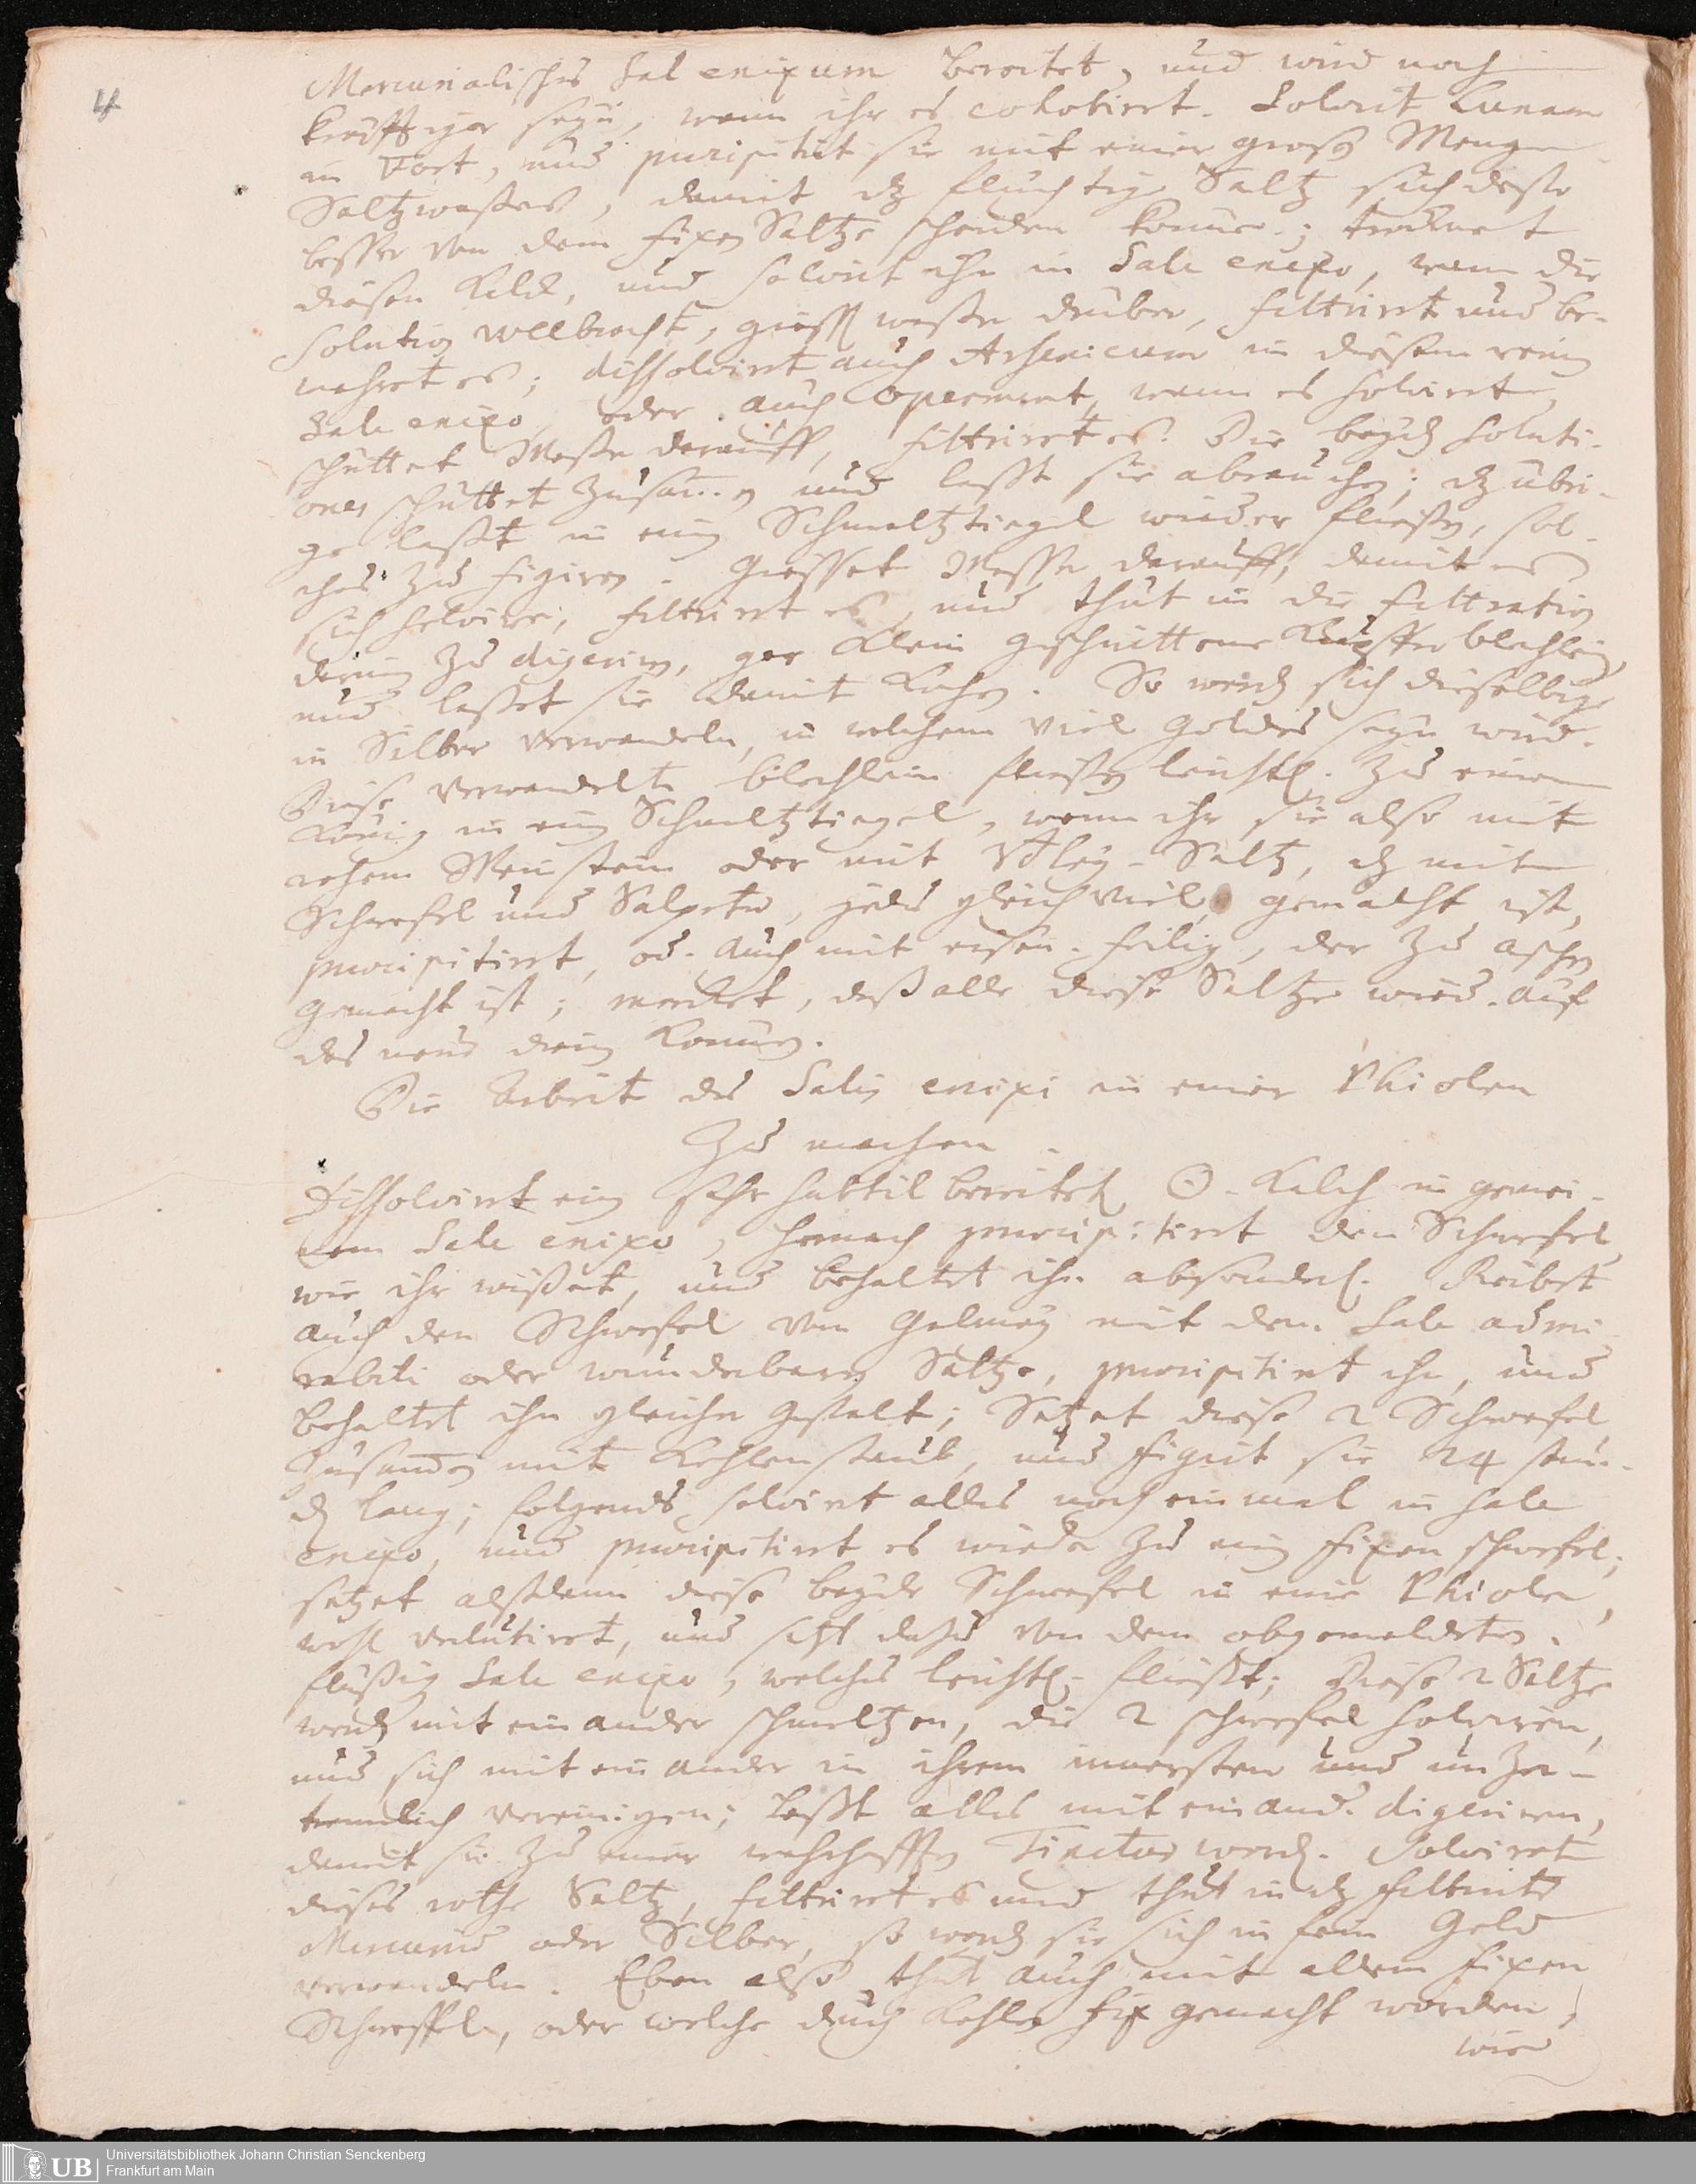 4
Mercurialisches Sal enixum bereitet, und wird noch
kräfftiger seyn, wenn ihr es cohobirt. Solvirt Lunam
in Fort, und praecipitirt sie mit einer großen Menge
Saltzwaßers, damit dz flüchtige Saltz sich desto
besser von dem fixen Saltze scheiden könne; trocknet
diesen Kalck, und solvirt ihn in Sale enixo, wenn die
Solution vollbracht, gießt waßer drüber, filtrirt und be-
wahret es; dissolvirt auch Arsenicum in diesem reinen
Sale enixo, oder auch Operment, wenn es solvirt,
schüttet Waßer darauff, filtriret es. Die beyden Soluti-
ones schüttet zusamen und laßt sie abrauchen; dz übri-
ge laßt in einen Schmeltztiegel wieder fließen, sol-
ches zu figiren. Giesset Wasser darauff, damit es
sich solvire, filtrirt es, und thut in die filtration
darin zu digeriren, gar klein geschnittene Kupfferblechlein,
und laßet sie damit kochen. So werden sich dieselbige
in Silber verwandeln, in welchem viel Goldes seyn wird.
Diese verwandelte blechlein fließen leichtl. zu einem
König in einen Schmeltztiegel, wenn ihr sie also mit
rohem Weinstein oder mit Saltz, dz mit
Schwefel und Salpeter, jedes gleich viel, gemacht ist,
praecipitirt, od. auch mit eisen-feilig, der zu aschen
gemacht ist; mercket, daß alle diese Saltze wied. auf
das neue dienen können.
Die Arbeit des Salis enixi in einer Phiolen
zu machen.
Dissolvirt einen sehr subtil bereiteten ☉-Kalch in gemei-
nem Sale enixo, hernach praecipitirt den Schwefel,
wie ihr wißet, und behaltet ihn absonderl. Reibet
auch den Schwefel von Galmey mit dem Sale admi-
rabili oder wunderbaren Saltze, praecipitirt ihn, und
behaltet ihn gleicher gestalt; Setzet diese 2 Schwefel
zusamen mit Kohlenstaub, und figirt sie 24 stun-
den lang; folgends solvirt alles noch einmal in Sale
enixo, und praecipitirt es wieder zu einen fixen schwefel;
setzet alßdann diese beyde Schwefel in eine Phiole,
wohl verlutiret, und setzt dazu von dem obgemeldeten
flüßigen Sale enixo, welches leichtl. fließt; Diese 2 Saltze
werden mit einander schmeltzen, die 2 schwefel solviren,
und sich mit einander in ihrem innersten und unzer-
trennlich vereinigen; laßt alles mit einand. digeriren,
damit sie zu einer rechschaffen Tinctur werden. Solviret
dieses rothe Saltz, filtriret es und thut in dz filtrirte
Mercurium oder Silber, so werden sie sich in fein Gold
verwandeln. Eben also thut auch mit allem fixen
Schweffel, oder welche durch Kohlen fix gemacht worden,
wie
UB
Universitätsbibliothek Johann Christian Senckenberg
Frankfurt am Main